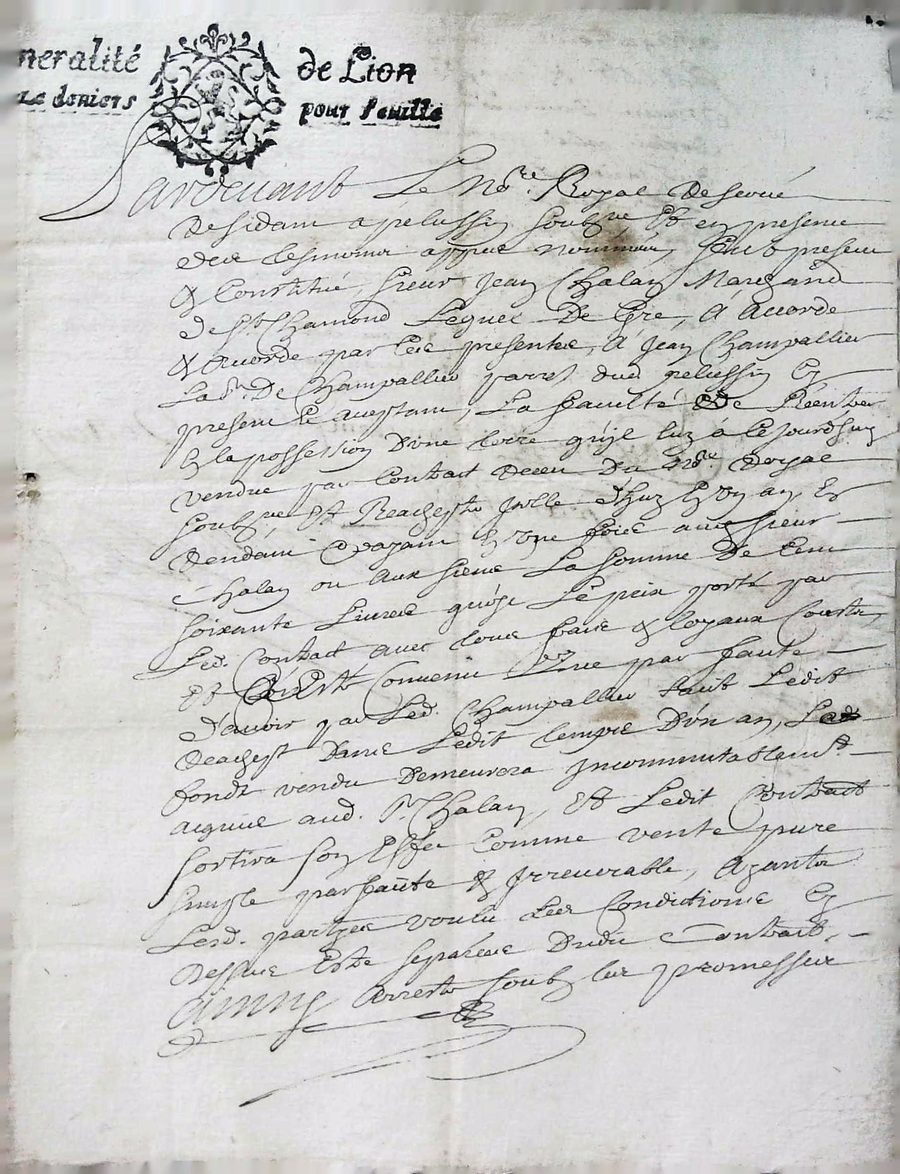 neralité de Lion
ze deniers pour feuille
Pardevant Le No.re Royal Reservé
De sidam a pelussin soubz.ne Et en presence
des tesmoins appres nommés, feut present
& Constitué, sieur Jean Chalan Marchand
de St. Chamond Lequel De gre, A Accorde
& Accorde par Ces presentes, A Jean Champallier
La De Champallier parr. dud pelussin Icy
present Et aceptant, La faculté De Rentrer
En la possession D'une terre qu'il luy à cejourdhuy
vendue par Contract Receu Du no.re Royal
soubz.ne Et Rachepter Icelle d'huy En Un an, Et
Rendant & payant En Une fois aud sieur
Chalan ou aux siens La somme De Cent
soixante Livres qu'est Le prix porté par
Led. Contract avec tous frais & loyaux Coustz,
Et Est Convenu que par faute
D'avoir par Led. Champallier fait Ledit
Reachept Dans Ledit temps D'Un an, Le
fondz vendu Demeurera incommutablem.t
acquis aud. Sr. Chalan, Et Ledit Contract
sortira son Effet Comme vente pure
simple parfaite & Irrevocable, Ayants
Lesd. parties voulu Les Conditions Cy
Dessus Estre separées Dudit Contract.
Ainsy arresté soubz leur promesses